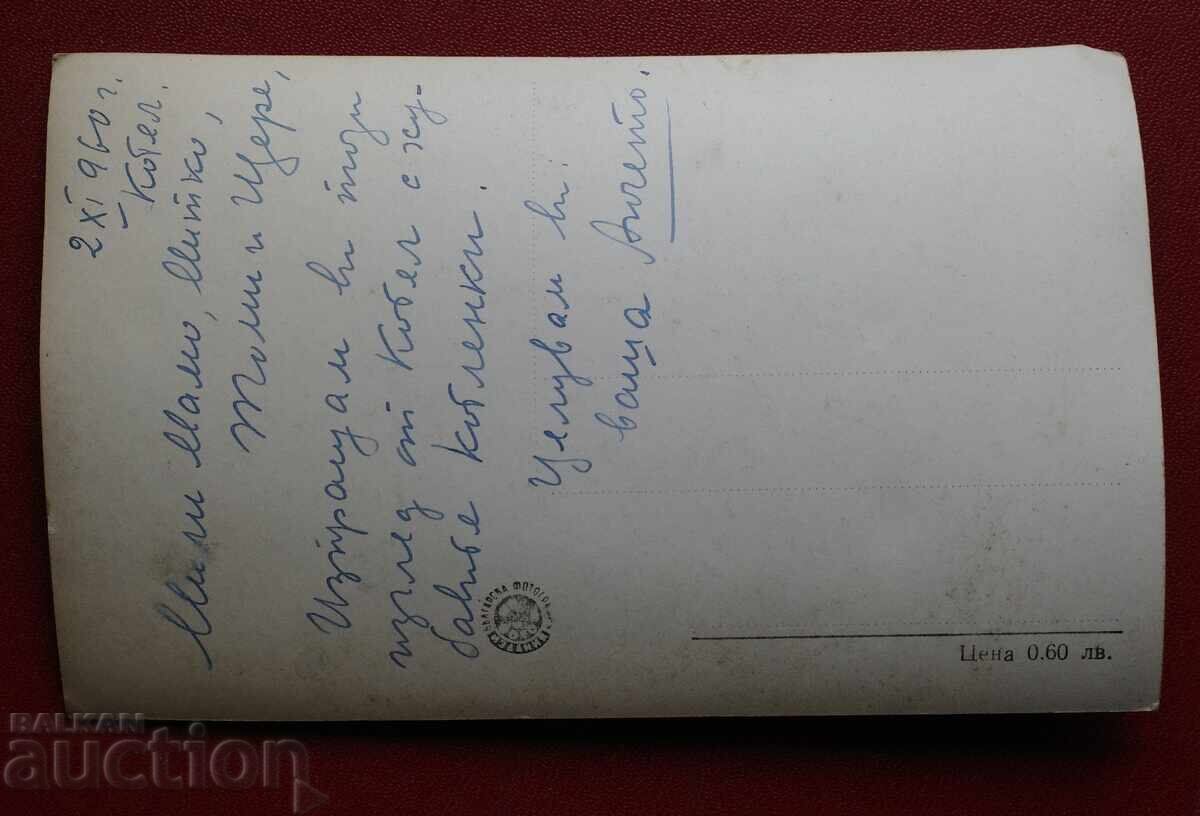 2 XI 960 г.
Котел.
Мили Мамо, Митко,
Жоли и Цере,
Изпращам ви този
изглед от Котел с ху-
бавите котленки.
Целувам ви:
ваша Анчето.
БЪЛГАРСКА ФОТОГРАФИЯ
Цена 0.60 лв.
BALKAN
auction